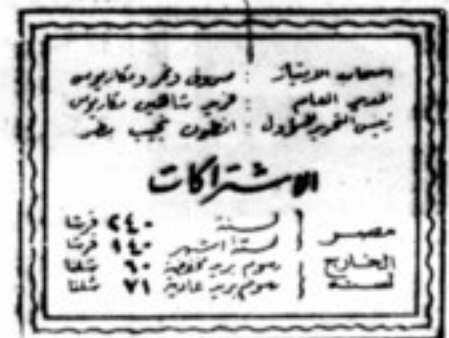 اصحاب الامتياز : صروف ونمر ومكاريوس
المدير العام : فريد شاهين مكاريوس
رئيس التحرير المسؤول : انطون نجيب مطر
الاشتراكات
مصر
لسنة ٢٤٠ قرشا
لستة اشهر ١٤٠ قرشا
الخارج لسنه
رسوم بريد مخفضة ٦٠ شلنا
رسوم بريد عادية ٧١ شلنا